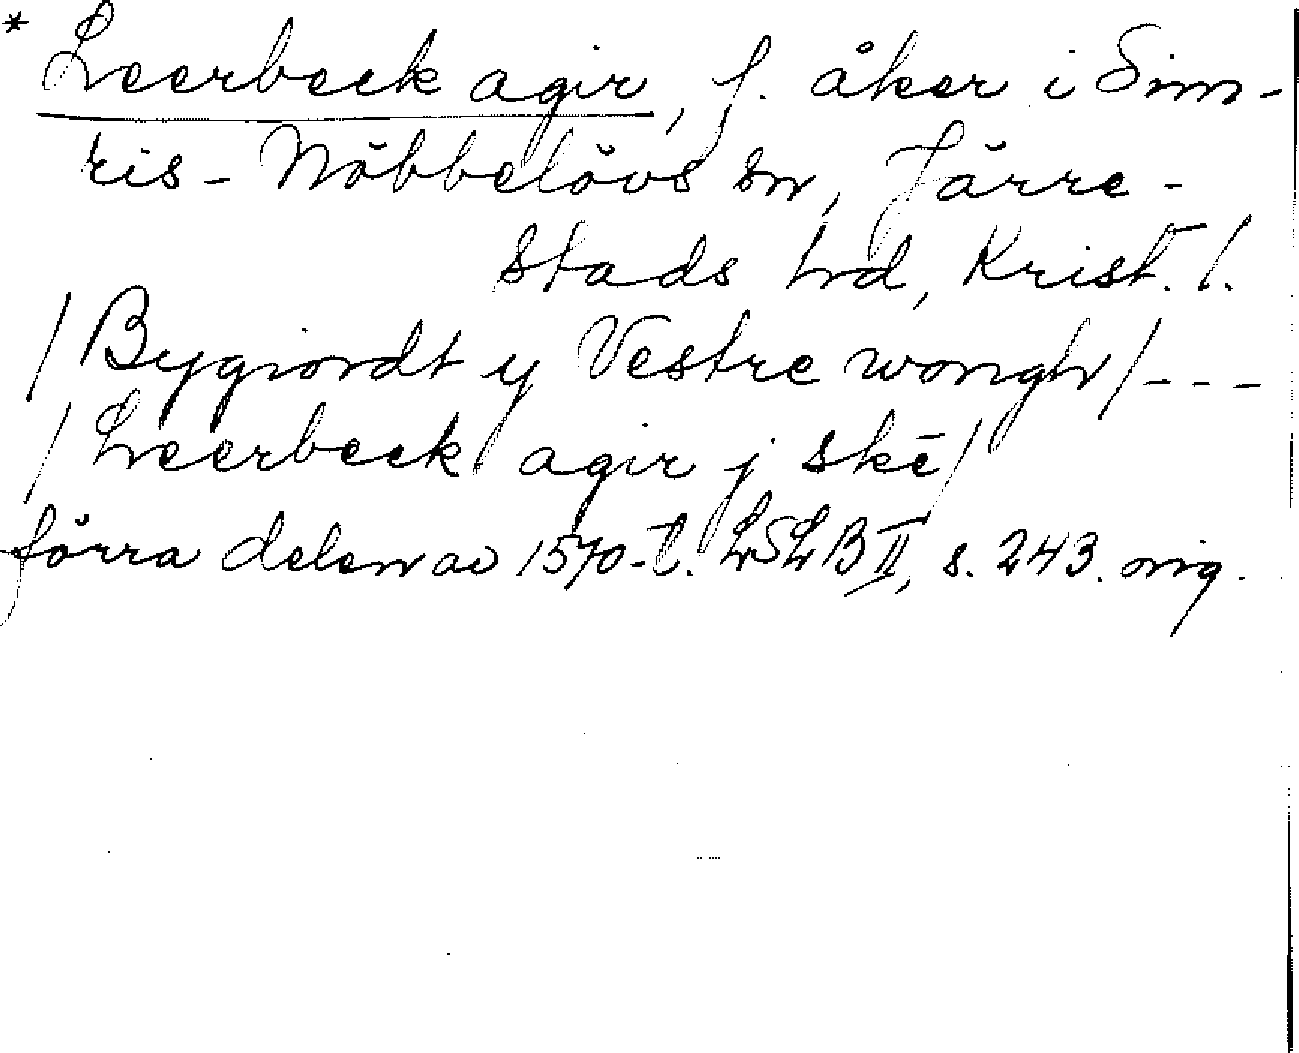 * Leerbeck agir, f. åker i Sim-
ris-Nöbbelövs sn, Järre-
stads hd, Krist. l.
/Bygiordt y Vestre wongh/---
/Leerbeck agir j skē/
förra delen av 1570-t. LSLB II, s. 243. orig.